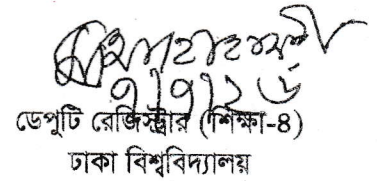 ৭/৭/২৬
ডেপুটি রেজিস্ট্রার (শিক্ষা-৪)
ঢাকা বিশ্ববিদ্যালয়